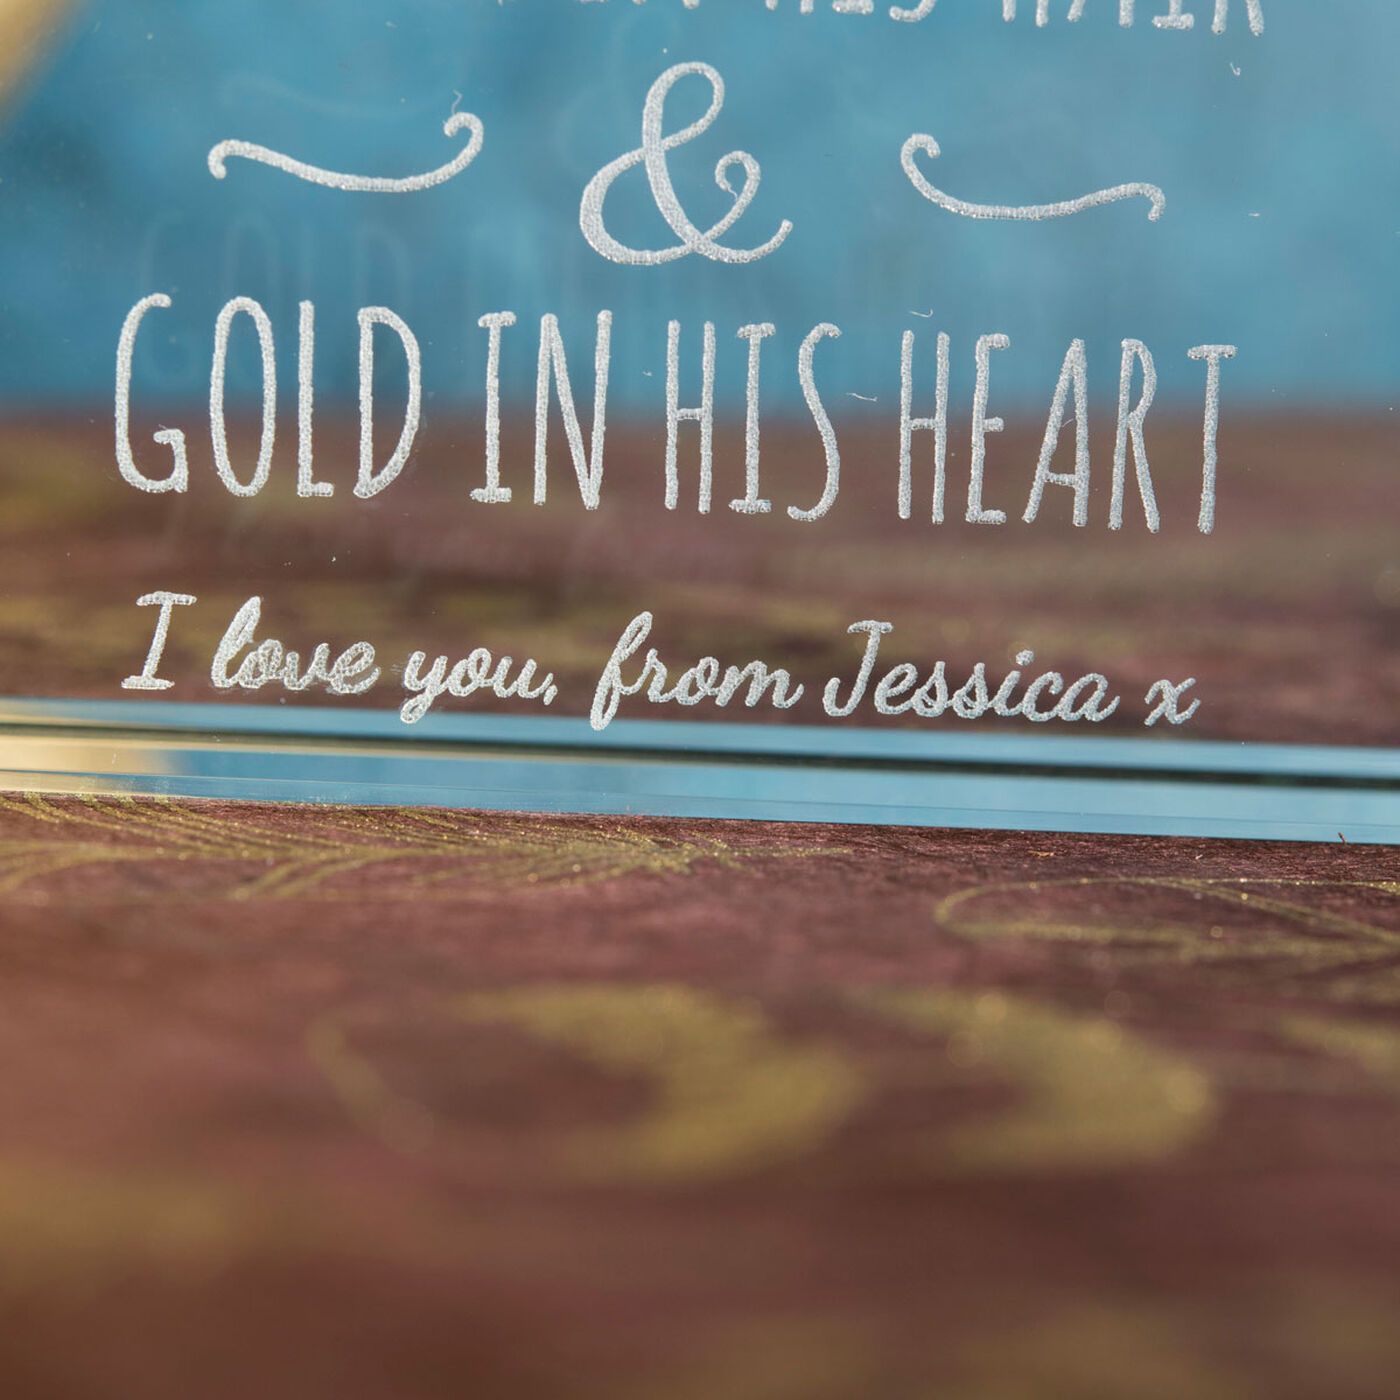 IN HIS HAIR
&
GOLD IN HIS HEART
I love you, from Jessica x